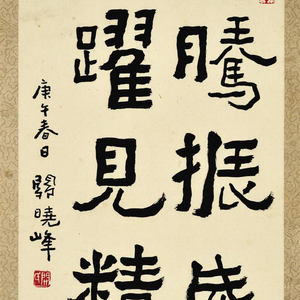 騰振成
躍見精
庚午春日
關曉峰